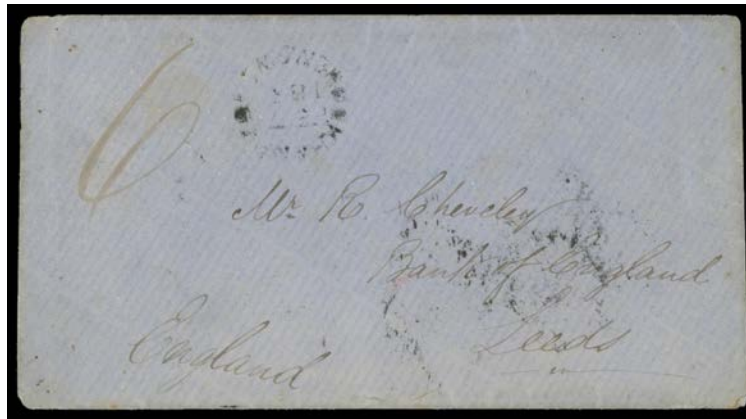 6
Mr. R. Cheveley
Bank of England
Leeds
England